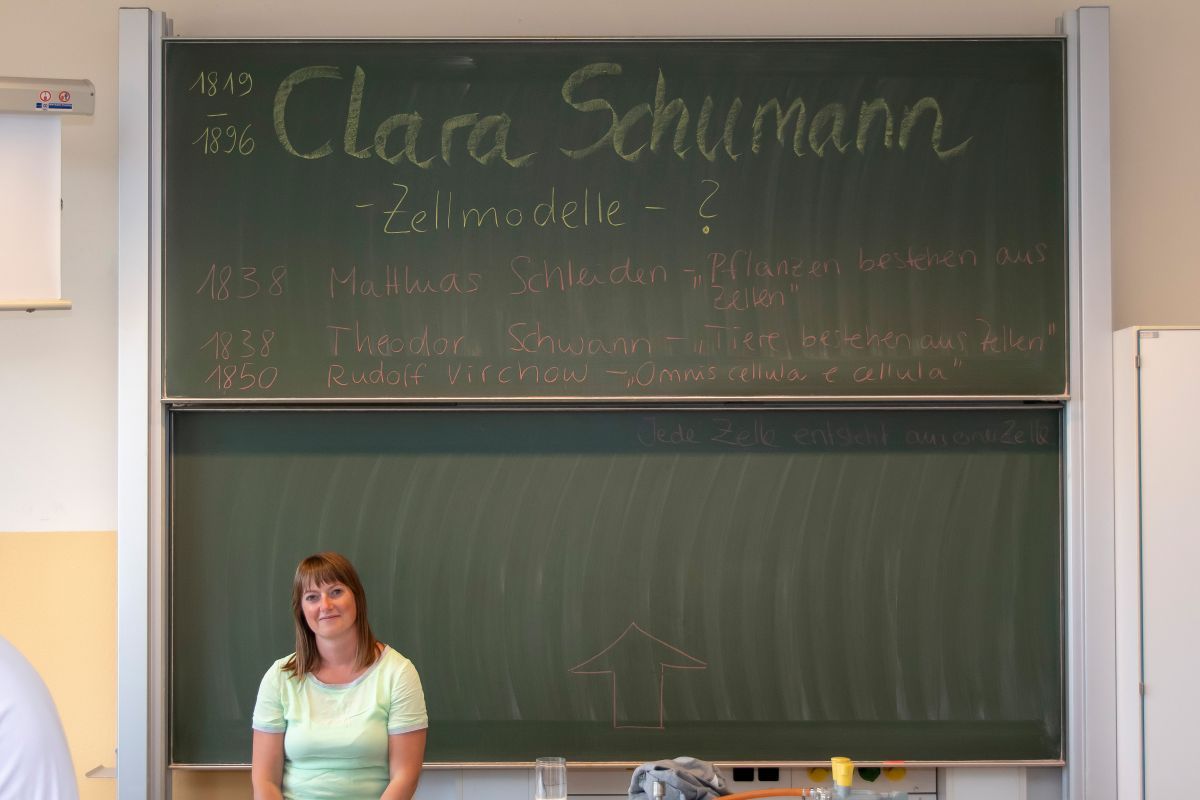 1819
–
1896
Clara Schumann
- Zellmodelle - ?
1838 Matthias Schleiden - „Pflanzen bestehen aus
Zellen"
1838 Theodor Schwann - „Tiere bestehen aus Zellen"
1850 Rudolf Virchow - „Omnis cellula e cellula"
Jede Zelle entsteht aus einer Zelle